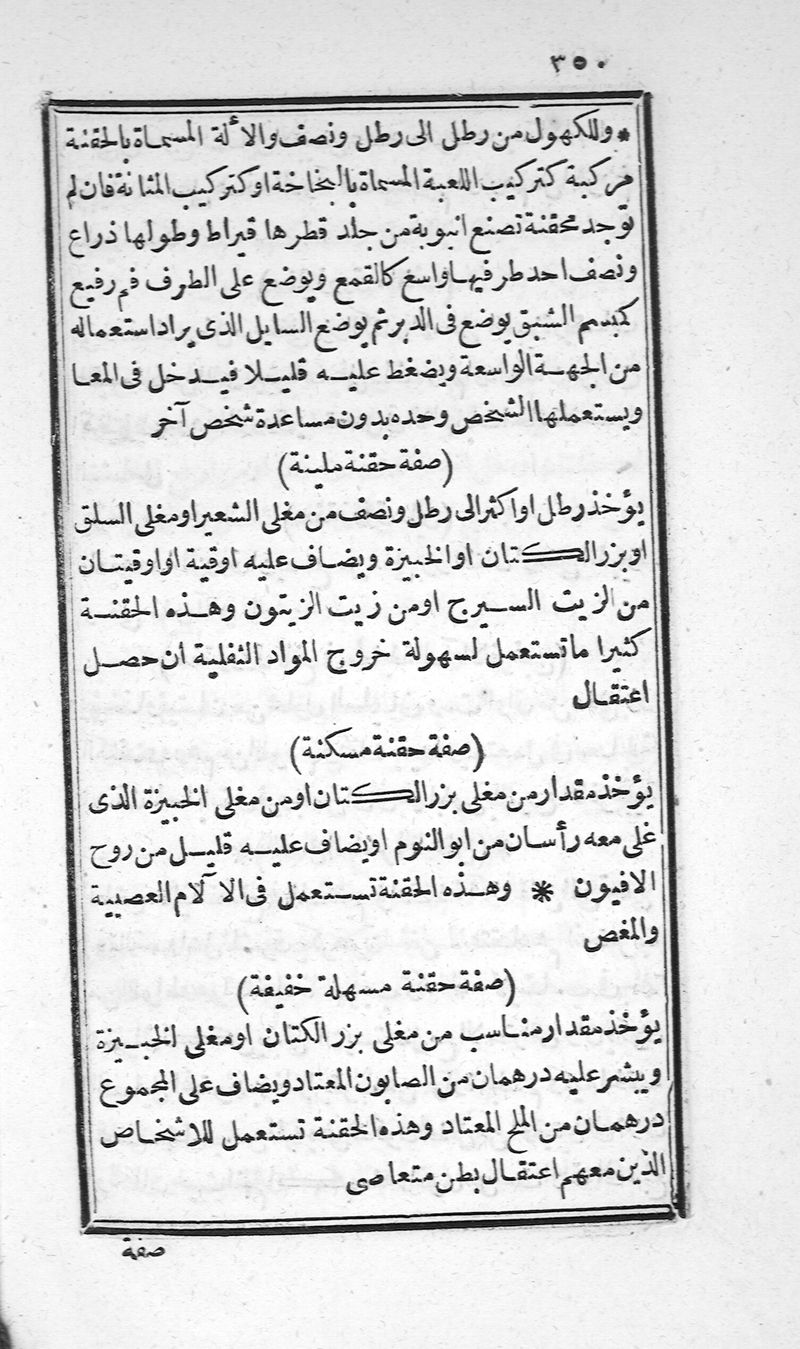 ٣٥٠
* وللكهول من رطل الى رطل ونصف والألة المسماة بالحقنة
مركبة كتركيب اللعبة المسماة بالبخاخة او كتركيب المثانة فان لم
توجد محقنة تصنع انبوبة من جلد قطرها قيراط وطولها ذراع
ونصف احد طرفيها واسع كالقمع ويوضع على الطرف فم رفيع
كمبسم الشبق يوضع فى الدبر ثم يوضع السايل الذى يراد استعماله
من الجهة الواسعة ويضغط عليه قليلا فيدخل فى المعا
ويستعملها الشخص وحده بدون مساعدة شخص آخر
(صفة حقنة ملينة)
يؤخذ رطل او اكثر الى رطل ونصف من مغلى الشعير او مغلى السلق
او بزر الكتان او الخبيزة ويضاف عليه اوقية او اوقيتان
من الزيت السيرج او من زيت الزيتون وهذه الحقنة
كثيرا ما تستعمل لسهولة خروج المواد الثفلية ان حصل
اعتقال
(صفة حقنة مسكنة)
يؤخذ مقدار من مغلى بزر الكتان او من مغلى الخبيزة الذى
غلى معه رأسان من ابو النوم او يضاف عليه قليل من روح
الافيون * وهذه الحقنة تستعمل فى الآلام العصبية
والمغص
(صفة حقنة مسهلة خفيفة)
يؤخذ مقدار مناسب من مغلى بزر الكتان او مغلى الخبيزة
ويبشر عليه درهمان من الصابون المعتاد ويضاف على المجموع
درهمان من الملح المعتاد وهذه الحقنة تستعمل للاشخاص
الذين معهم اعتقال بطن متعاصى
صفة